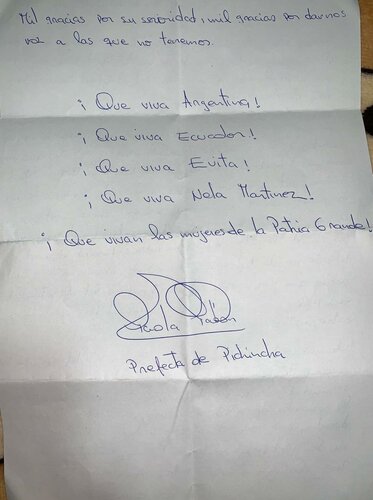 Mil gracias por su sororidad, mil gracias por darnos
voz a las que no tenemos.
¡Que viva Argentina!
¡Que viva Ecuador!
¡Que viva Evita!
¡Que viva Nela Martínez!
¡Que vivan las mujeres de la Patria Grande!
Paola Pabón
Prefecta de Pichincha